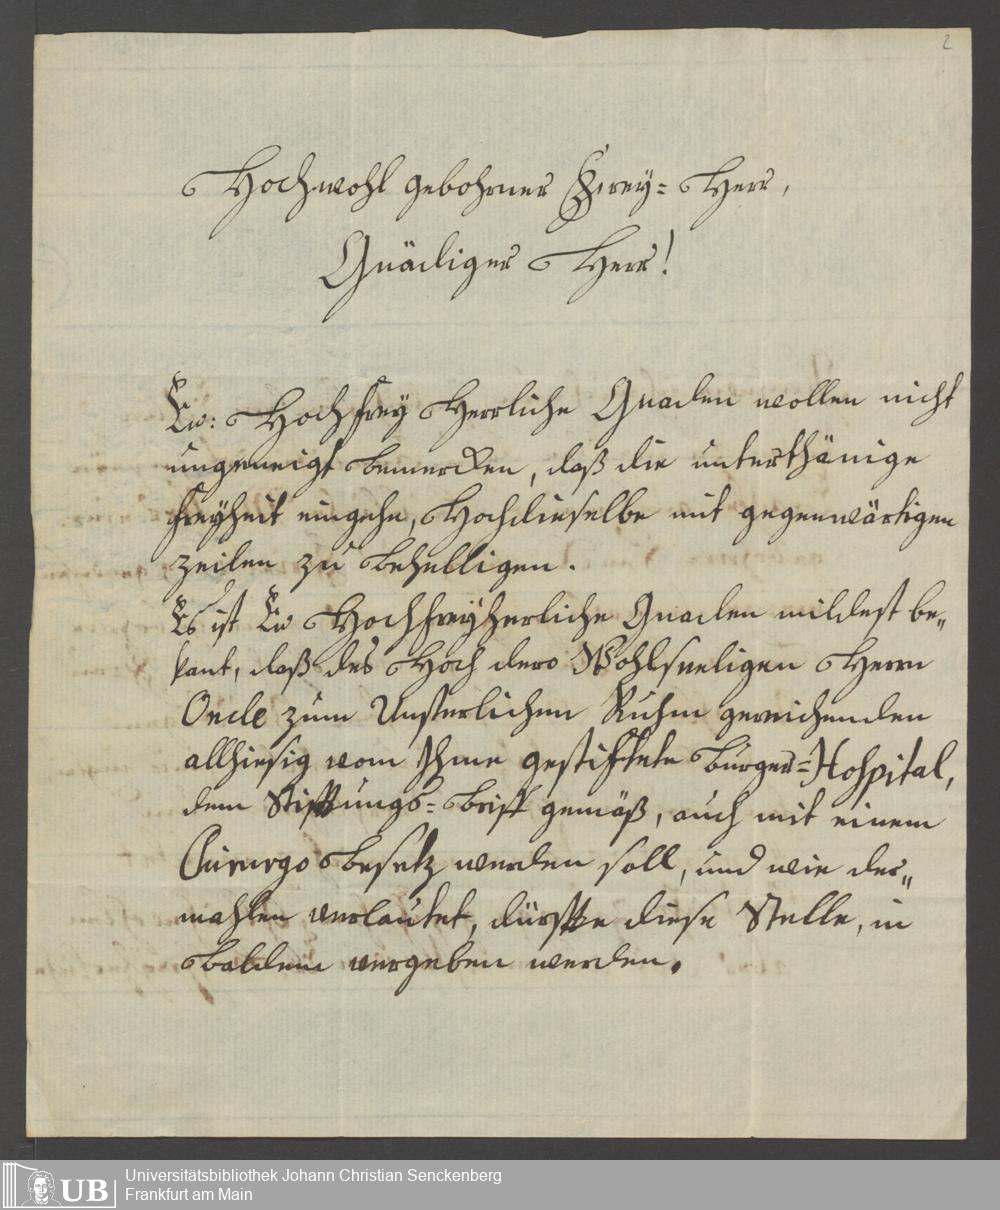 2
Hochwohl gebohrner Frey= Herr,
Gnädiger Herr!
Ew: Hochfrey Herrliche Gnaden wollen nicht
ungeneigt bemercken, daß die unterthänige
Freyheit eingehe, Hochdieselbe mit gegenwärtigen
zeilen zu behelligen.
Es ist Ew Hochfreyherliche Gnaden mildest be„
kant, daß des Hoch dero Wohlseeligen Herrn
Oncle zum Unsterlichen Ruhm gereichenden
allhiesig vom Ihme gestiftete Bürger=Hospital,
dem Stiftungs= Briff gemäß, auch mit einem
Chirurgo besetz werden soll, und wie der„
mahlen verlautet, dürfte diese Stelle, in
baldem vergeben werden.
UB
Universitätsbibliothek Johann Christian Senckenberg
Frankfurt am Main